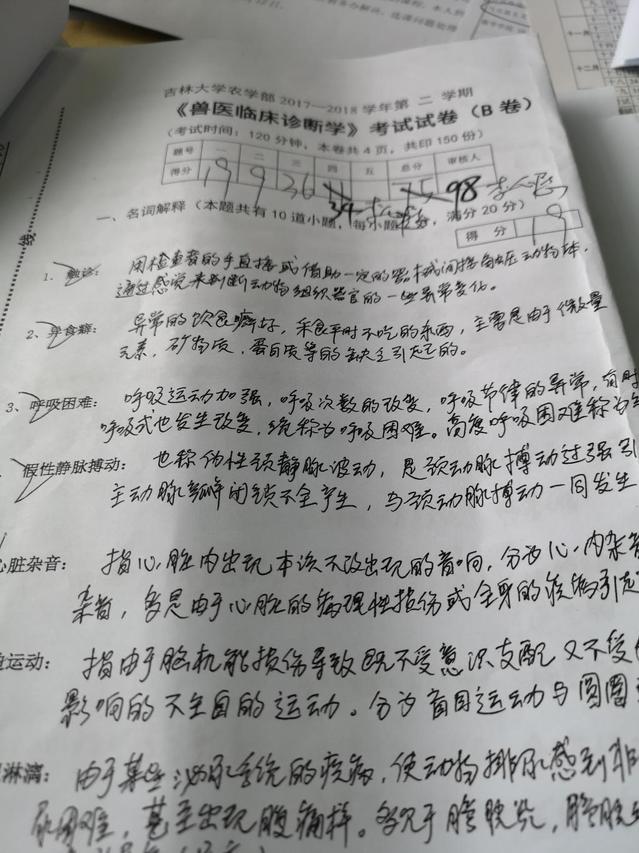 吉林大学农学部2017—2018学年第 二 学期
《兽医临床诊断学》考试试卷（B 卷）
（考试时间：120分钟，本卷共4页，共印150份）
题号 一 二 三 四 五 总分 审核人
得分 19 9 36 34 98
一、名词解释（本题共有10道小题，每小题 分，满分20分）
得 分 19
1、触诊： 用检查者的手直接或借助一定的器械间接触在动物体，
通过感觉来判断动物组织器官的一些异常变化。
2、异食癖： 异常的饮食癖好，采食平时不吃的东西，主要是由于微量
元素，矿物质，蛋白质等的缺乏引起的。
3、呼吸困难： 呼吸运动加强，呼吸次数的改变，呼吸节律的异常，有时
呼吸式也发生改变，统称为呼吸困难。高度呼吸困难称为
假性静脉搏动： 也称伪性颈静脉波动，是颈动脉搏动过强引
主动脉瓣闭锁不全产生，与颈动脉搏动一同发生
心脏杂音： 指心脏内出现本该不该出现的音响，分为心内杂音
杂音，多是由于心脏的病理性损伤或全身的疾病引起
运动： 指由于脑机能损伤导致既不受意识支配又不受
影响的不自目的运动。分为盲目运动与圆圈
淋漓： 由于某些泌尿系统的疾病，使动物排尿感到非
尿困难，甚至出现腹痛样。多见于膀胱炎，膀胱